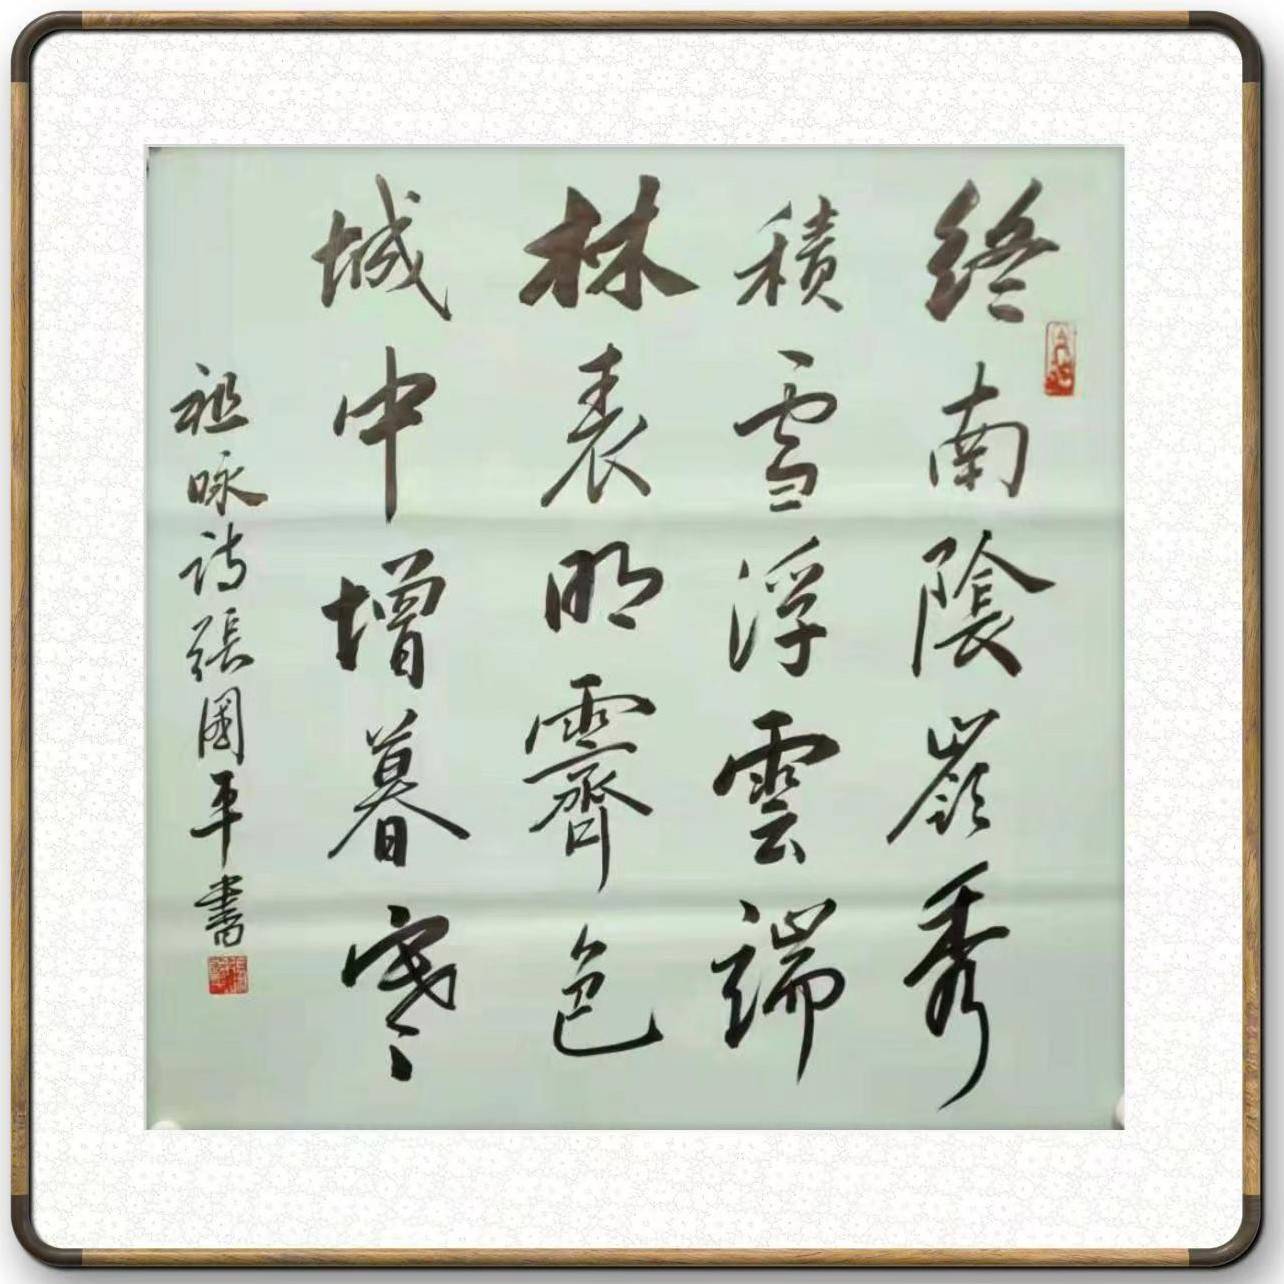 終南陰嶺秀
積雪浮雲端
林表明霽色
城中增暮寒
祖咏诗張國平書